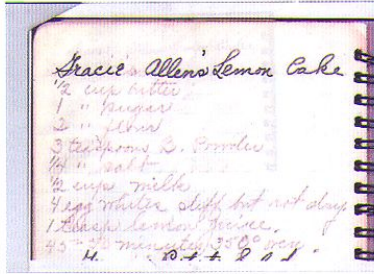 Gracie Allen's Lemon Cake
1/2 cup butter
1 " sugar
2 " flour
3 teaspoons B. Powder
1/4 " salt
1/2 cup milk
4 egg whites stiff but not dry
1 teasp lemon juice.
45 - 50 minutes 350° oven